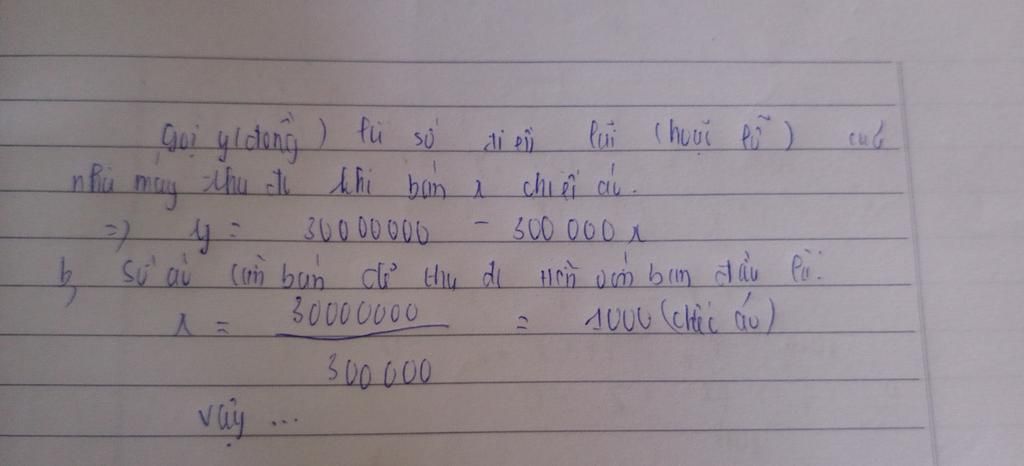 Gọi y(đồng) là số tiền lãi (hoặc lỗ) của
nhà máy thu đc khi bán x chiếc áo.
=> y = 30000000 - 300 000 x
b, Số áo cần bán để thu đc tiền vốn ban đầu là:
x = 30000000 / 300 000 = 1000 (chiếc áo)
Vậy ...